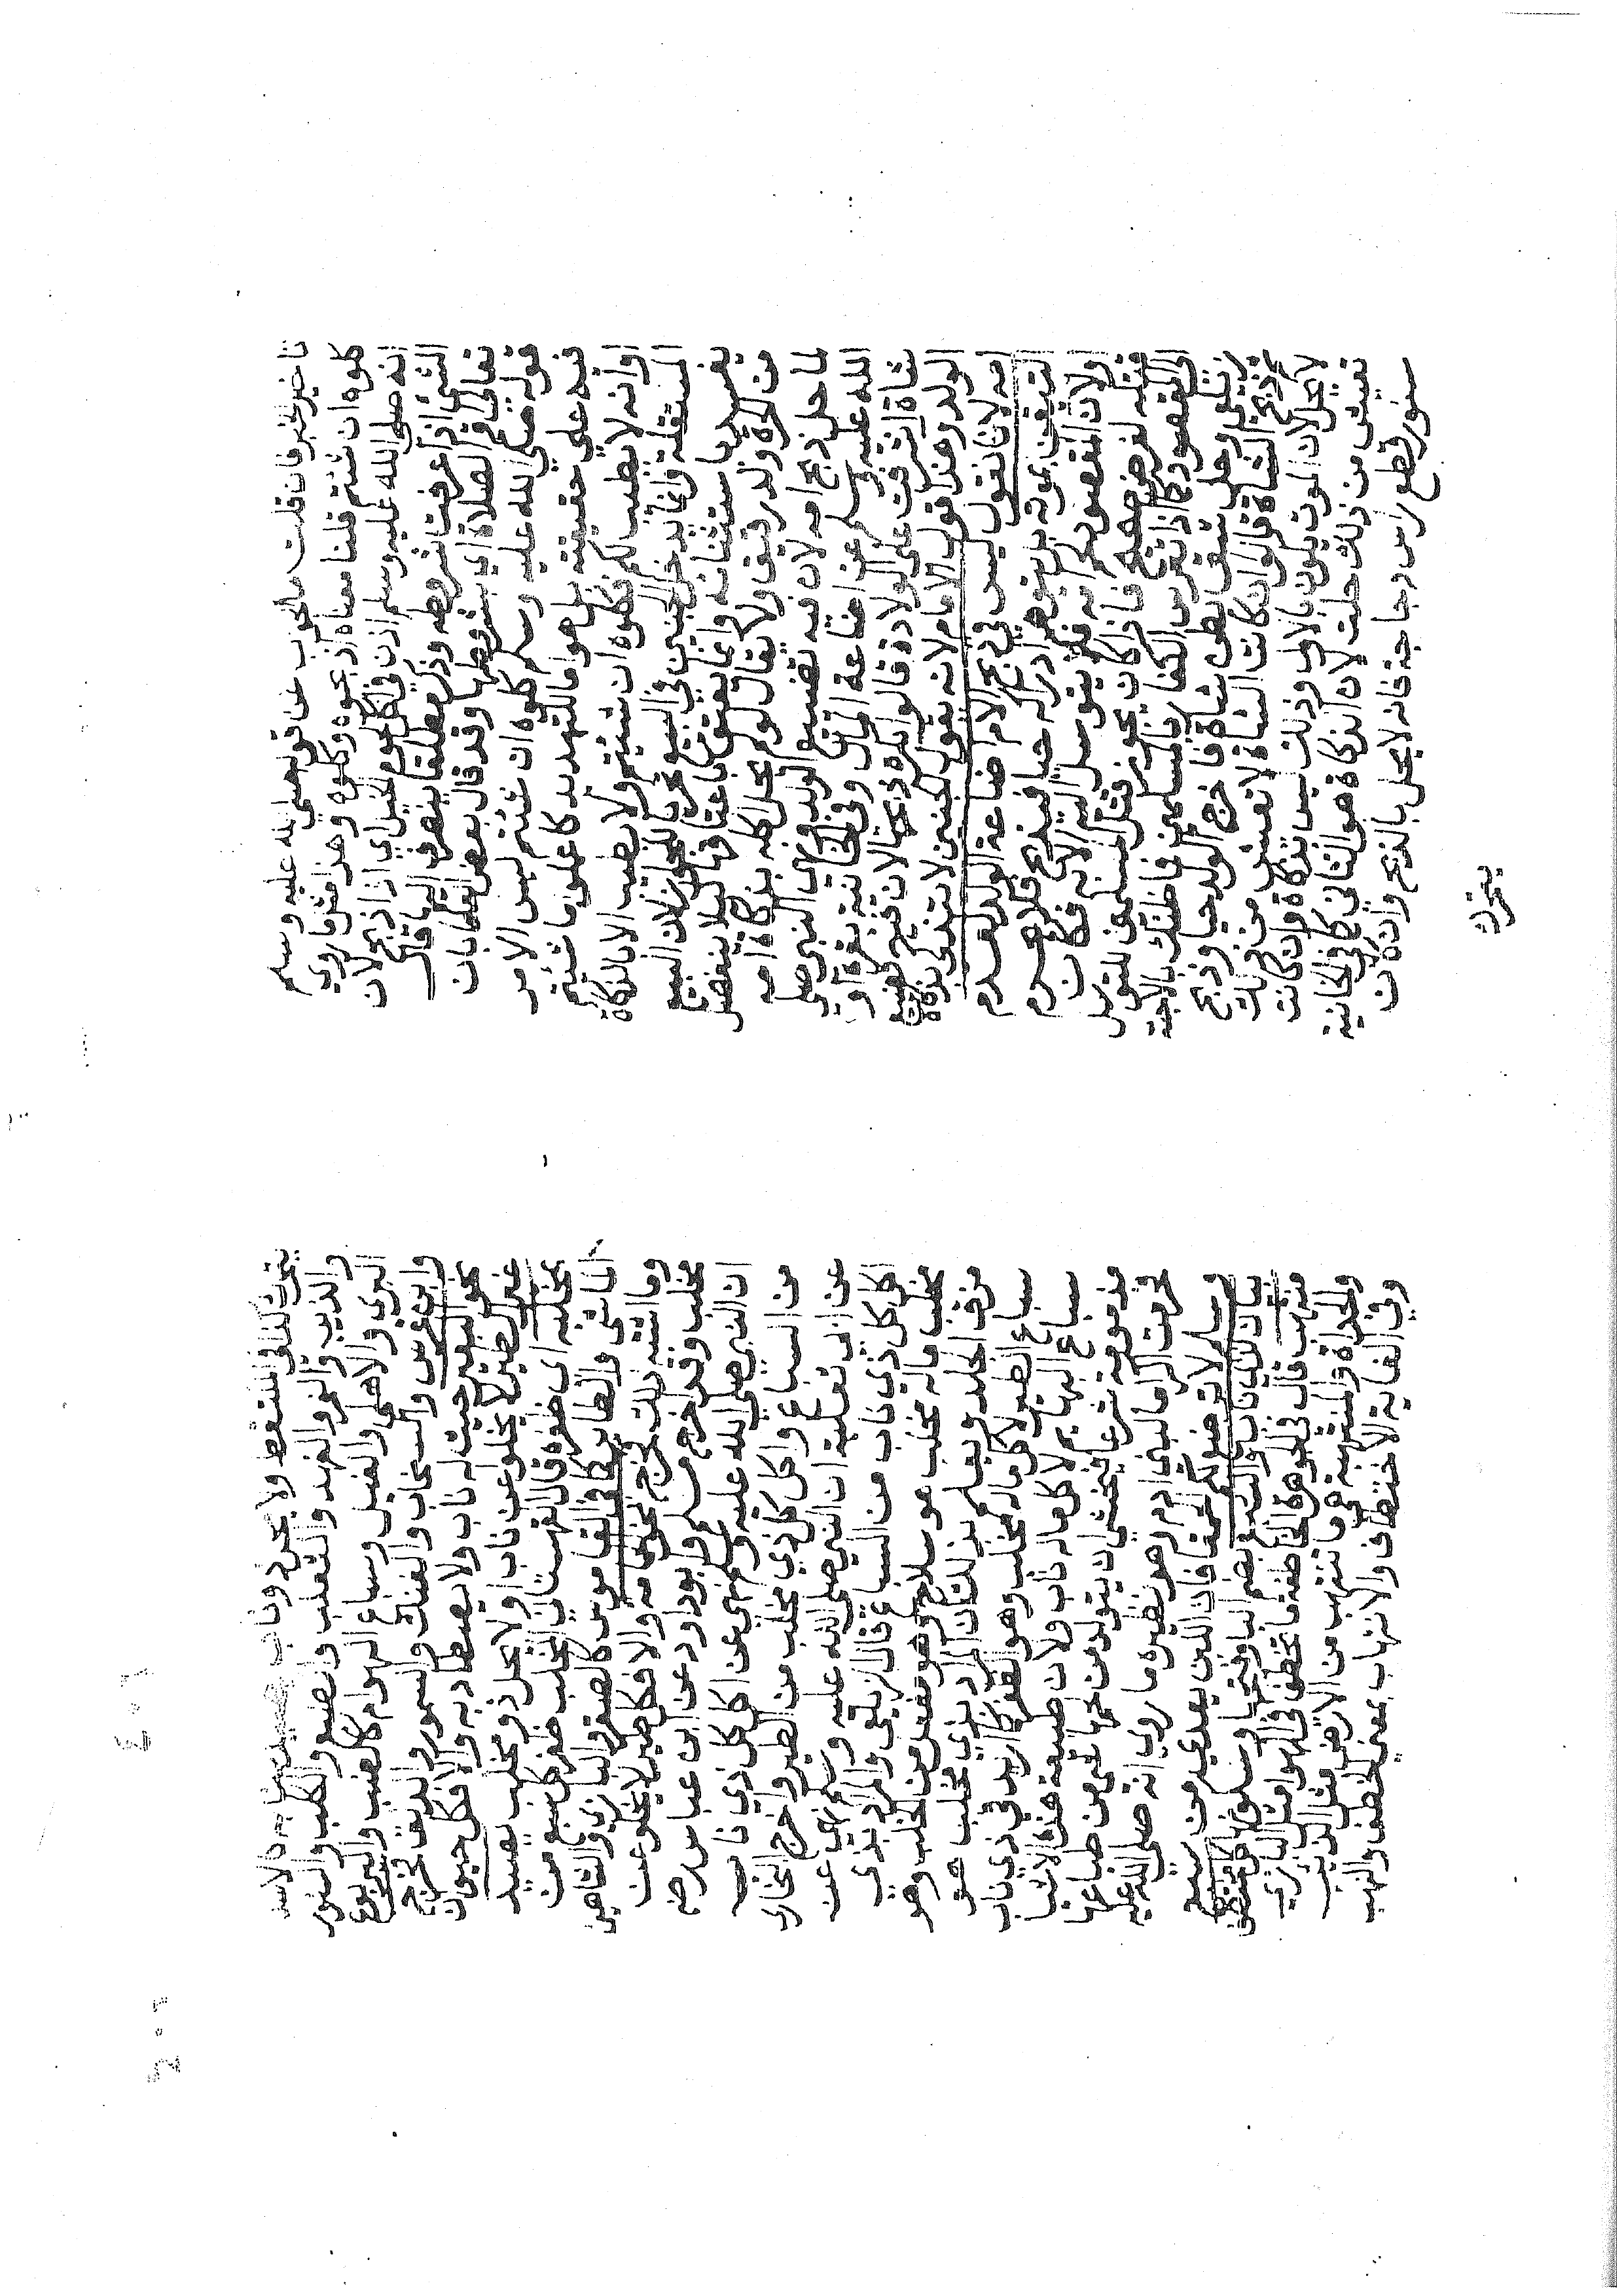 تاخير فان قلت ما الجواب عن قوله صلى الله عليه وسلم
كلوه ان شئتم قلنا معناه اذبحوه وكلوه وهذا مثل ما روي
انه صلى الله عليه وسلم اذن في اكل لحوم الخيل اي اذا ذبح لان
الشي اذا عرفت شروطه وذكر مطلقا ينصرف اليها قال
تعالى اقم الصلاة اي بشروطها وقد قال بعض العلما بان
قوله صلى الله عليه وسلم كلوه ان شئتم ليس الامر
فيه علي حقيقته بل هو اما للتهديد كاعملوا ما شئتم
او انه لا يطيب لكم فكلوه ان شئتم ولا يطيب الا بالذكاة
المستقلة وانما يدخل الجنين في البيع تحريا للجواز لان البيع
يفسد باستثنائه وانما يعتق باعتاقها كيلا ينفصل
من الحرة ولد رقيق ولا يقال لو لم يحل اكله بذكاة امه
لما حل ذبح امه لان فيه تضييع الولد ونهي النبي صلى
الله عليه وسلم عن اضاعة المال وفي الخانية بقرة او
شاة اشرفت على الولادة قالوا يكره ذبحها لان فيه تضييع
الولد وهذا قول الامام لانه يقول الجنين لا يتذكى بذكاة
امه لانا نقول ليس في ذبح الام اضاعة الولد لعدم
التيقن بموته بل يتوهم ادراكه حيا فيذبح فلا يحرم
ولان المقصود لحم الام فلا يتوسل اليه الا به فكان
قتله لغرض صحيح فاذا كان يجوز قتل المسلمين للتوسل
الى المقصود كما اذا تترس الكفار بالمسلمين فما ظنك بالاجنة
زيلعي رجل شق بطن شاة فاخرج الولد حيا وذبح
ثم ذبح الشاة قالوا ان كانت الشاة لا تعيش من ذلك
لا تحل لان الموت يكون بالاول وذلك ليس بذكاة وان كانت
تعيش من ذلك حلت لان الذكاة هو الثاني كما في الخانية
سنور قطع راس دجاجة فانه لا يحل بالذبح وان كان
يتحرك
يتحرك كذا في الملتقط ولا يحل ذو ناب كالاسد
والذيب والنمر والفهد والثعلب والضبع والكلب والسنور
البري والاهلي والفيل وسباع الهوام كالضب واليربوع
وابن عرس والسنجاب والفنك والسمور والدلق فخرج
نحو البعير حيث له ناب ولا يصطاد به والا فكل حيوان
غير الطير لا يخلو عن ناب ولا يحل ذو مخلب يصيد
بمخلبه اي ظفره قال القهستاني المخلب ظفر كل سبع من
الماشي والطاير كما في القاموس كالصقر والبازي والشاهين
وما اشبه ذلك فخرج نحو الحمامة والا فكل طير لا يخلو عن
مخلب وقد اخرج مسلم وابو داود عن ابن عباس رض
ان النبي صلى الله عليه وسلم نهي عن اكل كل ذي ناب
من السباع واكل كل ذي مخلب من الطير واخرج البخاري
عن ابي ثعلبة ان النبي صلى الله عليه وسلم نهى عن
اكل كل ذي ناب من السباع قال الزيلعي والمراد بذي
مخلب ما له مخلب هو سلاح وهو مفعل من الخلب وهو
مزق الجلد ويعلم بذلك ان المراد بذي مخلب هو
سباع الطير لا كل ما له مخلب وهو الظفر كما اريد في ذي ناب
سباع البهائم لا كل ما له ناب ولان طبيعة هذه الاشيا
مذمومة شرعا فيخشى ان يتولد من لحمها شي من طباعها
فحرمت اكراما لبني ادم وهو نظير ما روي انه صلى الله عليه
وسلم لا ترضعوا لكم الحمقا فان اللبن يعدي من سبع
بيان لذي ناب والسبع بضم البا وفتحها وسكونها كل مختطف
منتهب قال في الجوهرة الخاطفة ما تخطف في الهوا مثل البازي
والحداة والمنتهبة هي ما تنتهب من الارض مثل الذيب
وفي الغاية الاختطاف والانتهاب بمعني الخطف والنهب